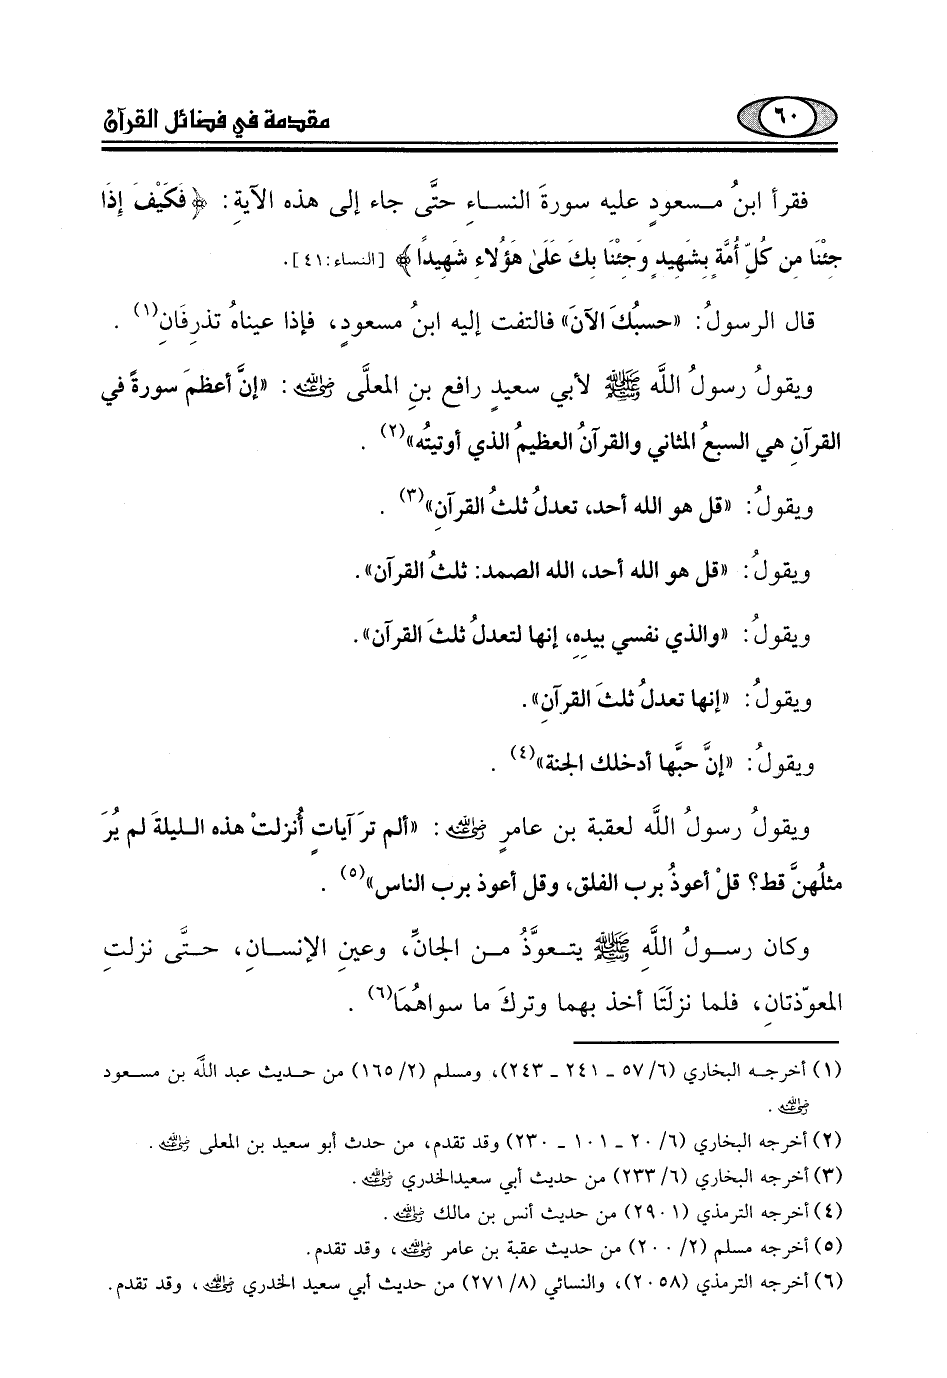 ٦٠
مقدمة في فضائل القرآن
فقرأ ابنُ مسعودٍ عليه سورةَ النساءِ حتَّى جاء إلى هذه الآيةِ: ﴿ فَكَيْفَ إِذَا
جِئْنَا مِن كُلِّ أُمَّةٍ بِشَهِيدٍ وَجِئْنَا بِكَ عَلَىٰ هَٰؤُلَاءِ شَهِيدًا ﴾ [النساء:٤١].
قال الرسولُ: «حسبُكَ الآنَ» فالتفت إليه ابنُ مسعودٍ، فإذا عيناهُ تذرِفَانِ(١) .
ويقولُ رسولُ اللَّه ﷺ لأبي سعيدٍ رافع بنِ المعلَّى رضي الله عنه: «إنَّ أعظمَ سورةً في
القرآنِ هي السبعُ المثاني والقرآنُ العظيمُ الذي أوتيتُه»(٢) .
ويقولُ: «قل هو الله أحد، تعدلُ ثلثُ القرآنِ»(٣) .
ويقولُ: «قل هو الله أحد، الله الصمد: ثلثُ القرآن».
ويقولُ: «والذي نفسي بيدِهِ، إنها لتعدلُ ثلثَ القرآن».
ويقولُ: «إنها تعدلُ ثلثَ القرآنِ».
ويقولُ: «إنَّ حبَّها أدخلك الجنة»(٤) .
ويقولُ رسولُ اللَّه لعقبة بن عامرٍ رضي الله عنه: «ألم ترَ آياتٍ أُنزلتْ هذه الليلةَ لم يُرَ
مثلُهنَّ قط؟ قلْ أعوذُ برب الفلق، وقل أعوذ برب الناس»(٥) .
وكان رسولُ اللَّهِ ﷺ يتعوَّذُ من الجانِّ، وعينِ الإنسانِ، حتَّى نزلتِ
المعوّذتانِ، فلما نزلَتَا أخذ بهما وتركَ ما سواهُمَا(٦) .
(١) أخرجه البخاري (٥٧/٦ ـ ٢٤١ ـ ٢٤٣)، ومسلم (١٦٥/٢) من حديث عبد اللَّه بن مسعود
رضي الله عنه .
(٢) أخرجه البخاري (٢٠/٦ ـ ١٠١ ـ ٢٣٠) وقد تقدم، من حدث أبو سعيد بن المعلى رضي الله عنه .
(٣) أخرجه البخاري (٢٣٣/٦) من حديث أبي سعيدالخدري رضي الله عنه .
(٤) أخرجه الترمذي (٢٩٠١) من حديث أنس بن مالك رضي الله عنه .
(٥) أخرجه مسلم (٢٠٠/٢) من حديث عقبة بن عامر رضي الله عنه، وقد تقدم.
(٦) أخرجه الترمذي (٢٠٥٨)، والنسائي (٢٧١/٨) من حديث أبي سعيد الخدري رضي الله عنه، وقد تقدم.